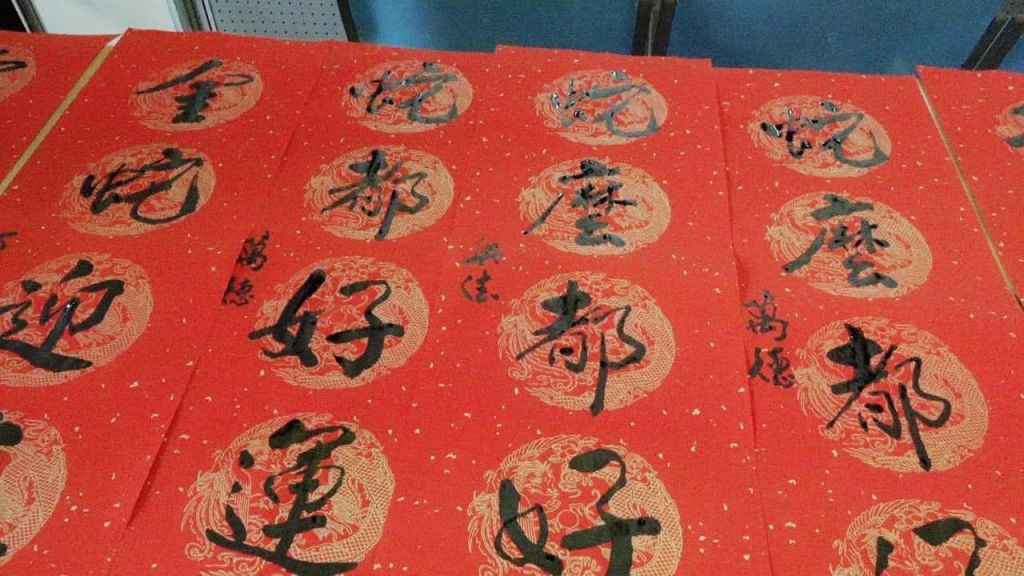 蛇麼都
萬德
蛇麼都好
蛇都好運
萬德
金蛇迎